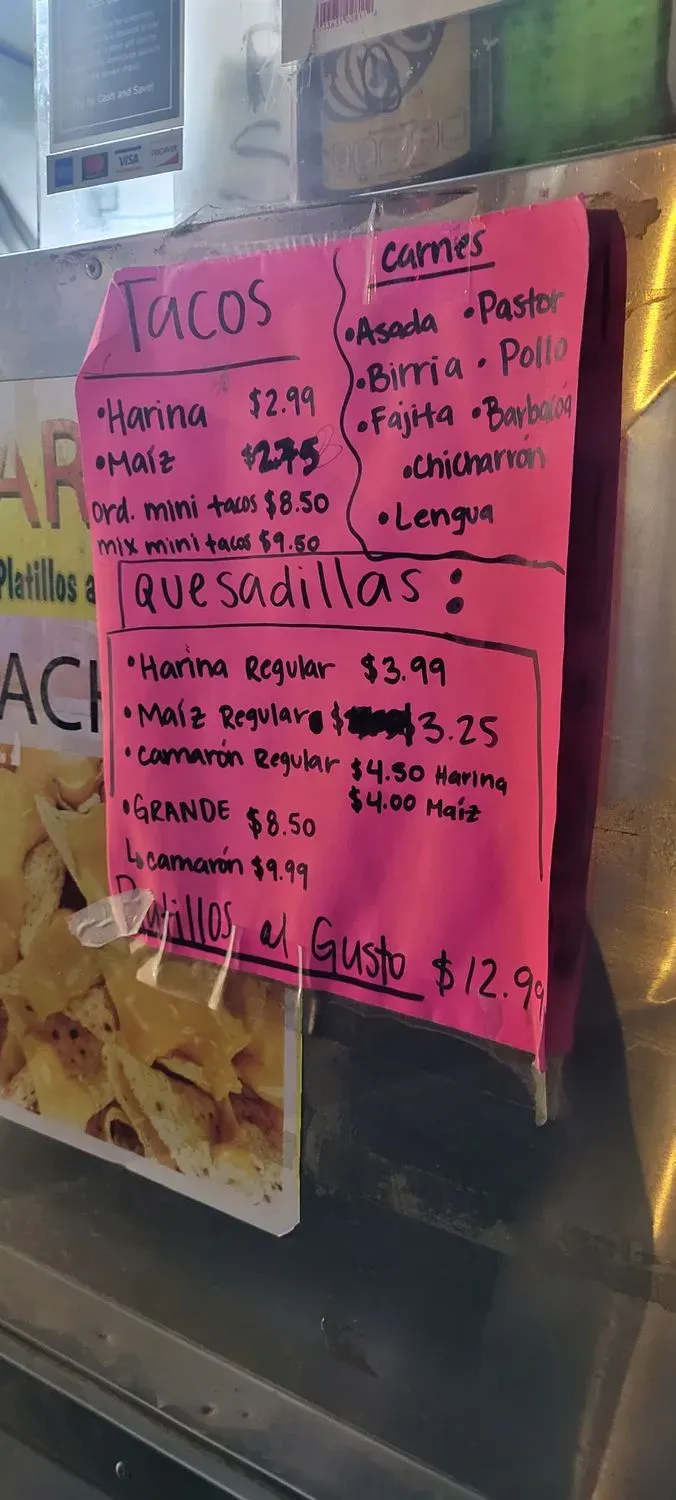 Cash and Save!
VISA
DISCOVER
Tacos
•Harina $2.99
•Maíz $2.75
ord. mini tacos $8.50
mix mini tacos $9.50
Carnes
•Asada •Pastor
•Birria •Pollo
•Fajita •Barbacoa
•Chicharrón
•Lengua
Quesadillas:
•Harina Regular $3.99
•Maíz Regular $3.25
•Camarón Regular $4.50 Harina
$4.00 Maíz
•GRANDE $8.50
↳camarón $9.99
Platillos al Gusto $12.99
AR
Platillos a
ACH